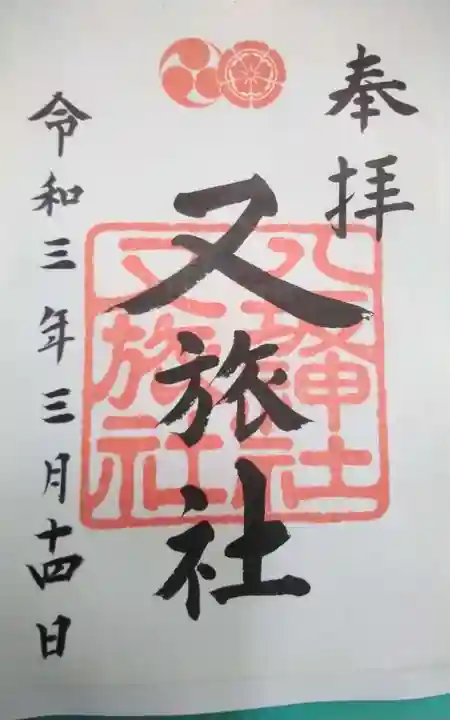 奉拝
又旅社
八坂神社
又旅社
令和三年三月十四日